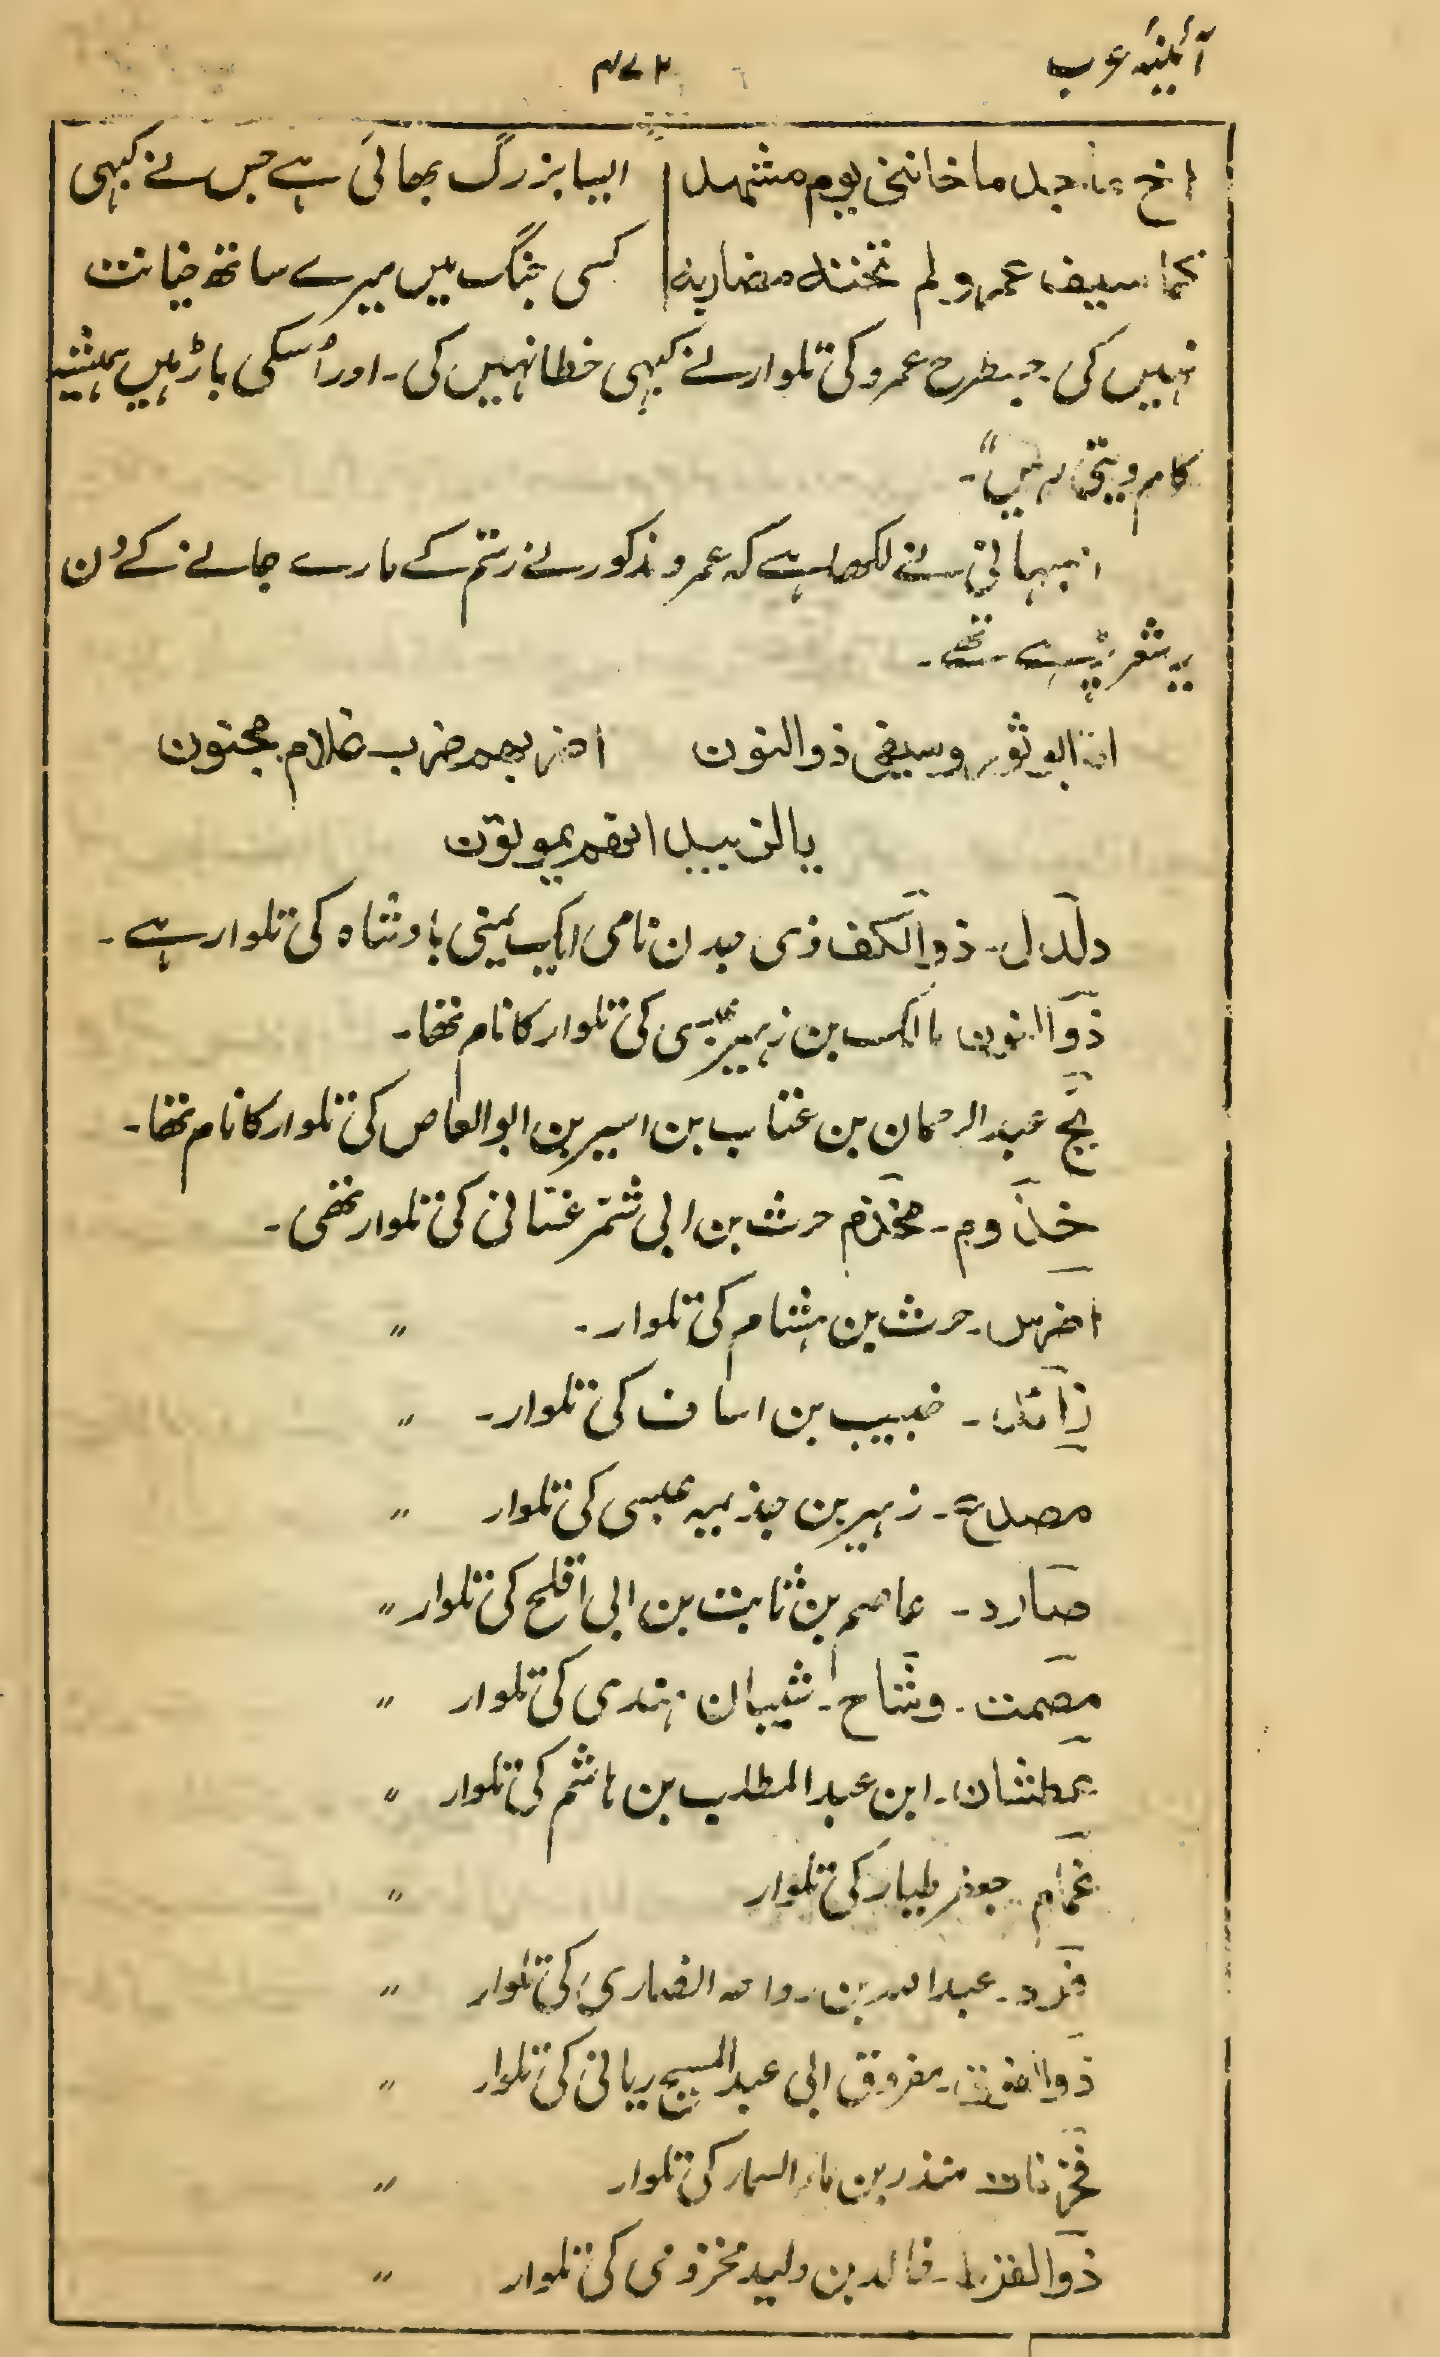 آئینۂ عرب
۴۷۲
اخ ماجد ما خاننی یوم مشہد | ایسا بزرگ بھائی ہے جس نے کبہی
کما سیف عمرو لم تخنہ مضاربہ | کسی جنگ میں میرے ساتھ خیانت
نہیں کی جسطرح عمرو کی تلوار نے کبہی خطا نہیں کی۔ اور اُسکی باڑہیں ہمیشہ
کام دیتی رہیں"۔
لکھا ہے کہ عمرو مذکور نے رستم کے مارے جانے کے دن
یہ شعر پڑہے تھے۔
انا ابو ثور وسیفی ذوالنون اضربہم ضرب غلام مجنون
یالزبید انہم یموتون
دلدل۔ ذوالکف ذی جدن نامی ایک یمنی بادشاہ کی تلوار ہے۔
ذوالنون مالک بن زہیر عبسی کی تلوار کا نام تھا۔
عبدالرحمان بن عتاب بن اسیر بن ابوالعاص کی تلوار کا نام تھا۔
خذوم۔ مخذم حرث بن ابی شمر غسانی کی تلوار تھی۔
اضرس۔ حرث بن ہشام کی تلوار۔ 〃
زائد۔ خبیب بن اساف کی تلوار۔ 〃
مصدع۔ زہیر بن جذیمہ عبسی کی تلوار 〃
صارد۔ عاصم بن ثابت بن ابی اقلح کی تلوار 〃
مصمت۔ وشاح۔ شیبان ہندی کی تلوار 〃
عطشان۔ ابن عبدالمطلب بن ہاشم کی تلوار 〃
غمام جعفر طیار کی تلوار 〃
عبداللہ بن رواحہ انصاری کی تلوار 〃
مفروق ابی عبدالمسیح کی تلوار 〃
منذر بن ماء السماء کی تلوار 〃
ذوالقرط۔ خالد بن ولید مخزومی کی تلوار 〃